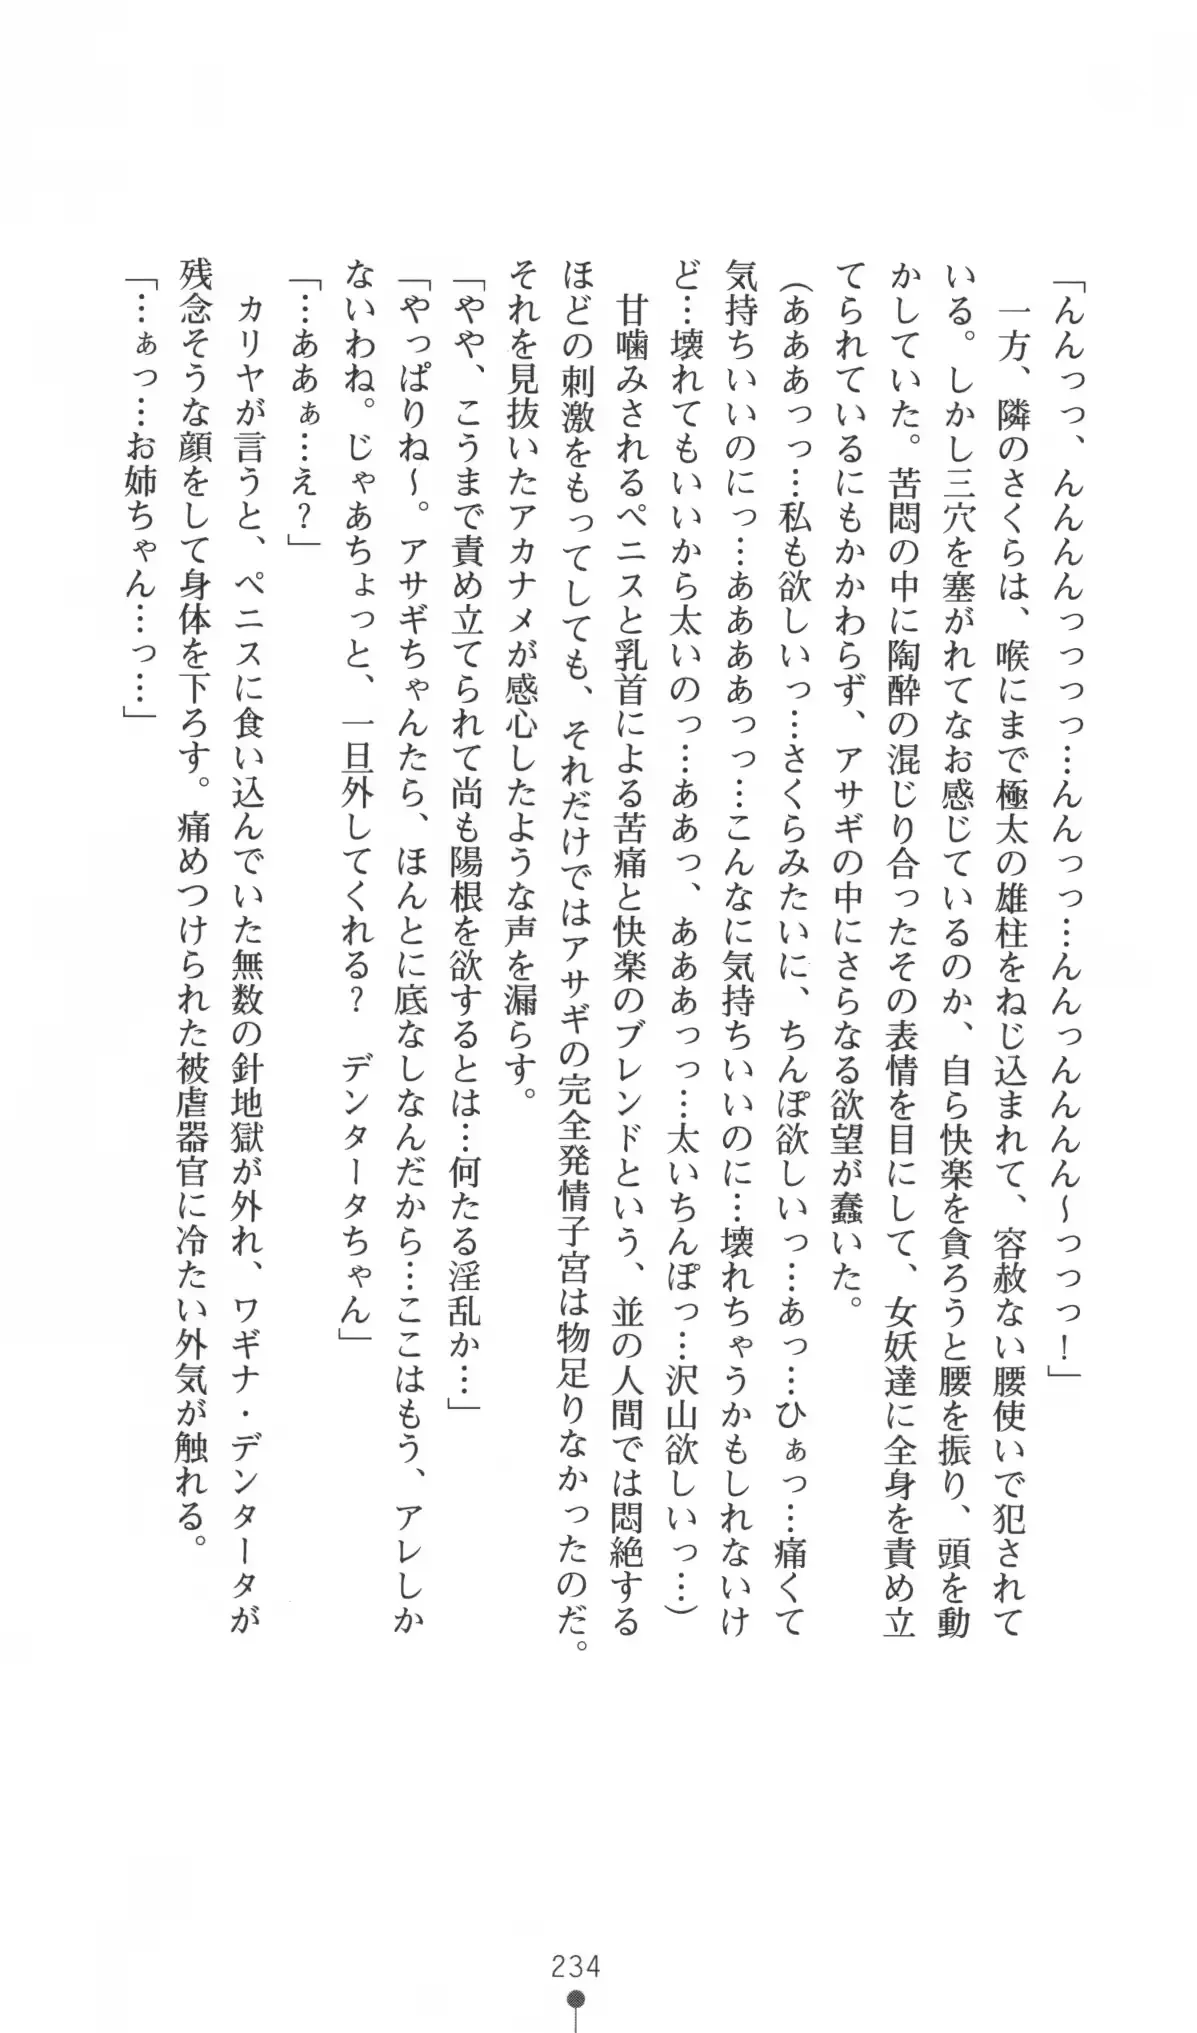 「んんっっ、んんんんっっっっ…んんっっ…んんっんんんん～っっっ！」
　一方、隣のさくらは、喉にまで極太の雄柱をねじ込まれて、容赦ない腰使いで犯されて
いる。しかし三穴を塞がれてなお感じているのか、自ら快楽を貪ろうと腰を振り、頭を動
かしていた。苦悶の中に陶酔の混じり合ったその表情を目にして、女妖達に全身を責め立
てられているにもかかわらず、アサギの中にさらなる欲望が蠢いた。
（あああっっ…私も欲しいっ…さくらみたいに、ちんぽ欲しいっ…あっ…ひぁっ…痛くて
気持ちいいのにっ…ああああっっ…こんなに気持ちいいのに…壊れちゃうかもしれないけ
ど…壊れてもいいから太いのっ…ああっ、あああっっ…太いちんぽっ…沢山欲しいっ…）
　甘噛みされるペニスと乳首による苦痛と快楽のブレンドという、並の人間では悶絶する
ほどの刺激をもってしても、それだけではアサギの完全発情子宮は物足りなかったのだ。
それを見抜いたアカナメが感心したような声を漏らす。
「やや、こうまで責め立てられて尚も陽根を欲するとは…何たる淫乱か…」
「やっぱりね～。アサギちゃんたら、ほんとに底なしなんだから…ここはもう、アレしか
ないわね。じゃあちょっと、一旦外してくれる？　デンタータちゃん」
「…ああぁ…え？」
　カリヤが言うと、ペニスに食い込んでいた無数の針地獄が外れ、ワギナ・デンタータが
残念そうな顔をして身体を下ろす。痛めつけられた被虐器官に冷たい外気が触れる。
「…ぁっ…お姉ちゃん…っ…」
234